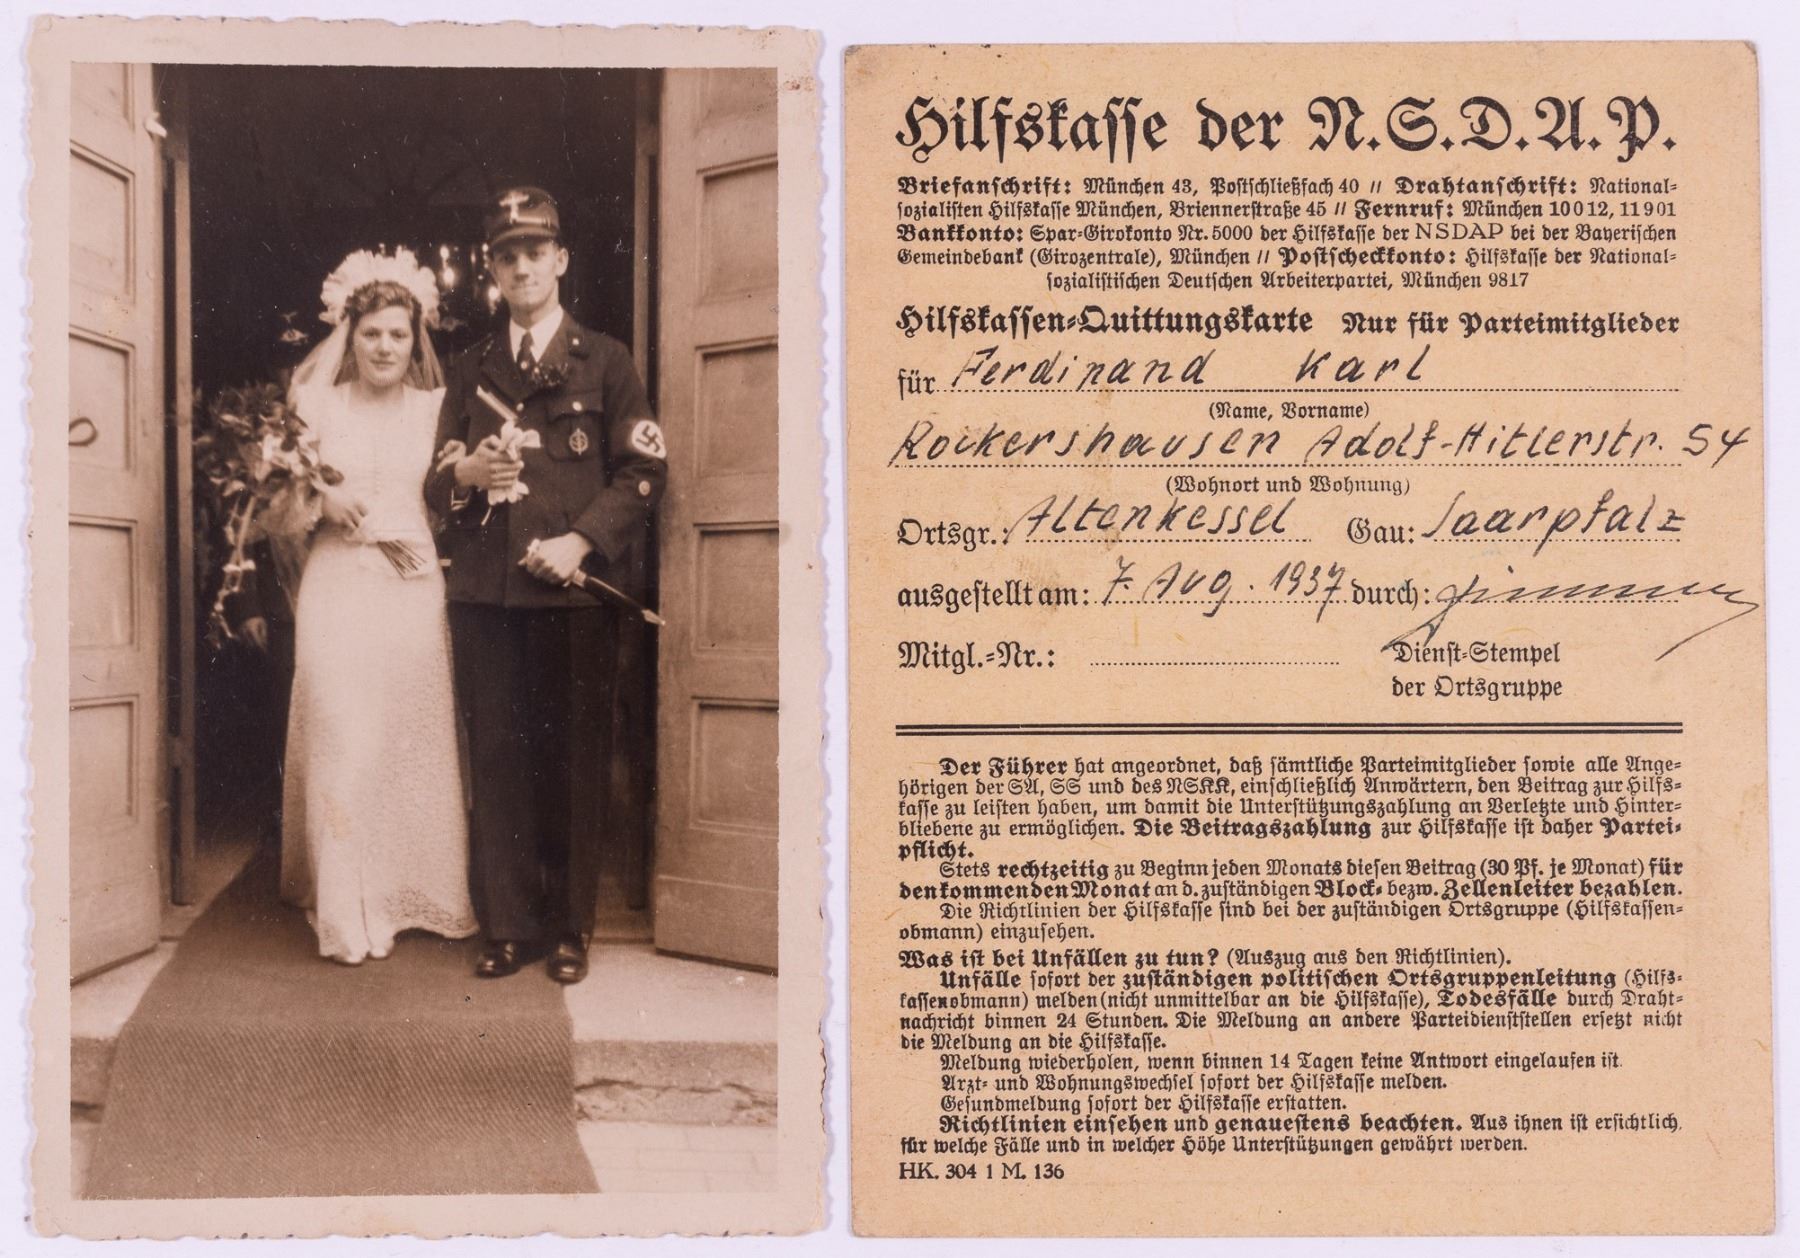 Hilfskasse der N.S.D.A.P.
Briefanschrift: München 43, Postschließfach 40 // Drahtanschrift: National-
sozialisten Hilfskasse München, Briennerstraße 45 // Fernruf: München 10012, 11901
Bankkonto: Spar-Girokonto Nr. 5000 der Hilfskasse der NSDAP bei der Bayerischen
Gemeindebank (Girozentrale), München // Postscheckkonto: Hilfskasse der National-
sozialistischen Deutschen Arbeiterpartei, München 9817
Hilfskassen-Quittungskarte Nur für Parteimitglieder
für Ferdinand Karl
(Name, Vorname)
Rockershausen Adolf-Hitlerstr. 54
(Wohnort und Wohnung)
Ortsgr.: Altenkessel Gau: Saarpfalz
ausgestellt am: 7. Aug. 1937 durch:
Mitgl.-Nr.: Dienst-Stempel
der Ortsgruppe
Der Führer hat angeordnet, daß sämtliche Parteimitglieder sowie alle Ange-
hörigen der SA, SS und des NSKK, einschließlich Anwärtern, den Beitrag zur Hilfs-
kasse zu leisten haben, um damit die Unterstützungszahlung an Verletzte und Hinter-
bliebene zu ermöglichen. Die Beitragszahlung zur Hilfskasse ist daher Partei-
pflicht.
Stets rechtzeitig zu Beginn jeden Monats diesen Beitrag (30 Pf. je Monat) für
den kommenden Monat an d. zuständigen Block- bezw. Zellenleiter bezahlen.
Die Richtlinien der Hilfskasse sind bei der zuständigen Ortsgruppe (Hilfskassen-
obmann) einzusehen.
Was ist bei Unfällen zu tun? (Auszug aus den Richtlinien).
Unfälle sofort der zuständigen politischen Ortsgruppenleitung (Hilfs-
kassenobmann) melden (nicht unmittelbar an die Hilfskasse), Todesfälle durch Draht-
nachricht binnen 24 Stunden. Die Meldung an andere Parteidienststellen ersetzt nicht
die Meldung an die Hilfskasse.
Meldung wiederholen, wenn binnen 14 Tagen keine Antwort eingelaufen ist.
Arzt- und Wohnungswechsel sofort der Hilfskasse melden.
Gesundmeldung sofort der Hilfskasse erstatten.
Richtlinien einsehen und genauestens beachten. Aus ihnen ist ersichtlich,
für welche Fälle und in welcher Höhe Unterstützungen gewährt werden.
HK. 304 1 M. 136